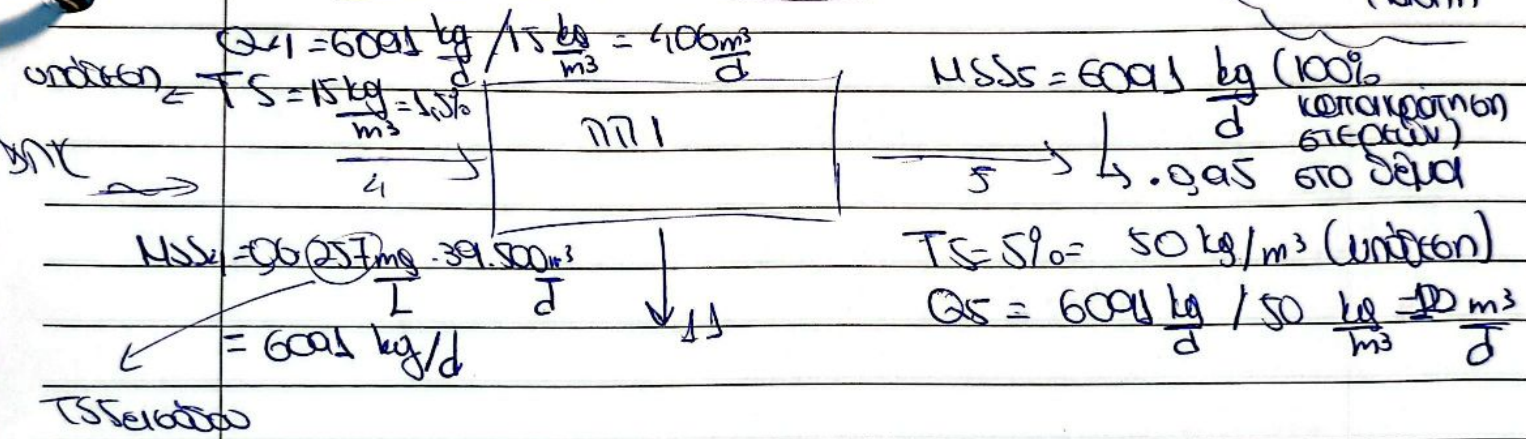 Q4 = 6091 kg/d / 15 kg/m³ = 406 m³/d
υπόθεση ← TS = 15 kg/m³ = 1,5%
ΠΠ1
MSS5 = 6091 kg/d (100%
κατακράτηση
στερεών)
↳ . 0,95 στο θέμα
4
5
MSS4 = 0,6 257 mg/L . 39.500 m³/d
= 6091 kg/d
11
TS = 5% = 50 kg/m³ (υπόθεση)
Q5 = 6091 kg/d / 50 kg/m³ = m³/d
TSSεισόδου